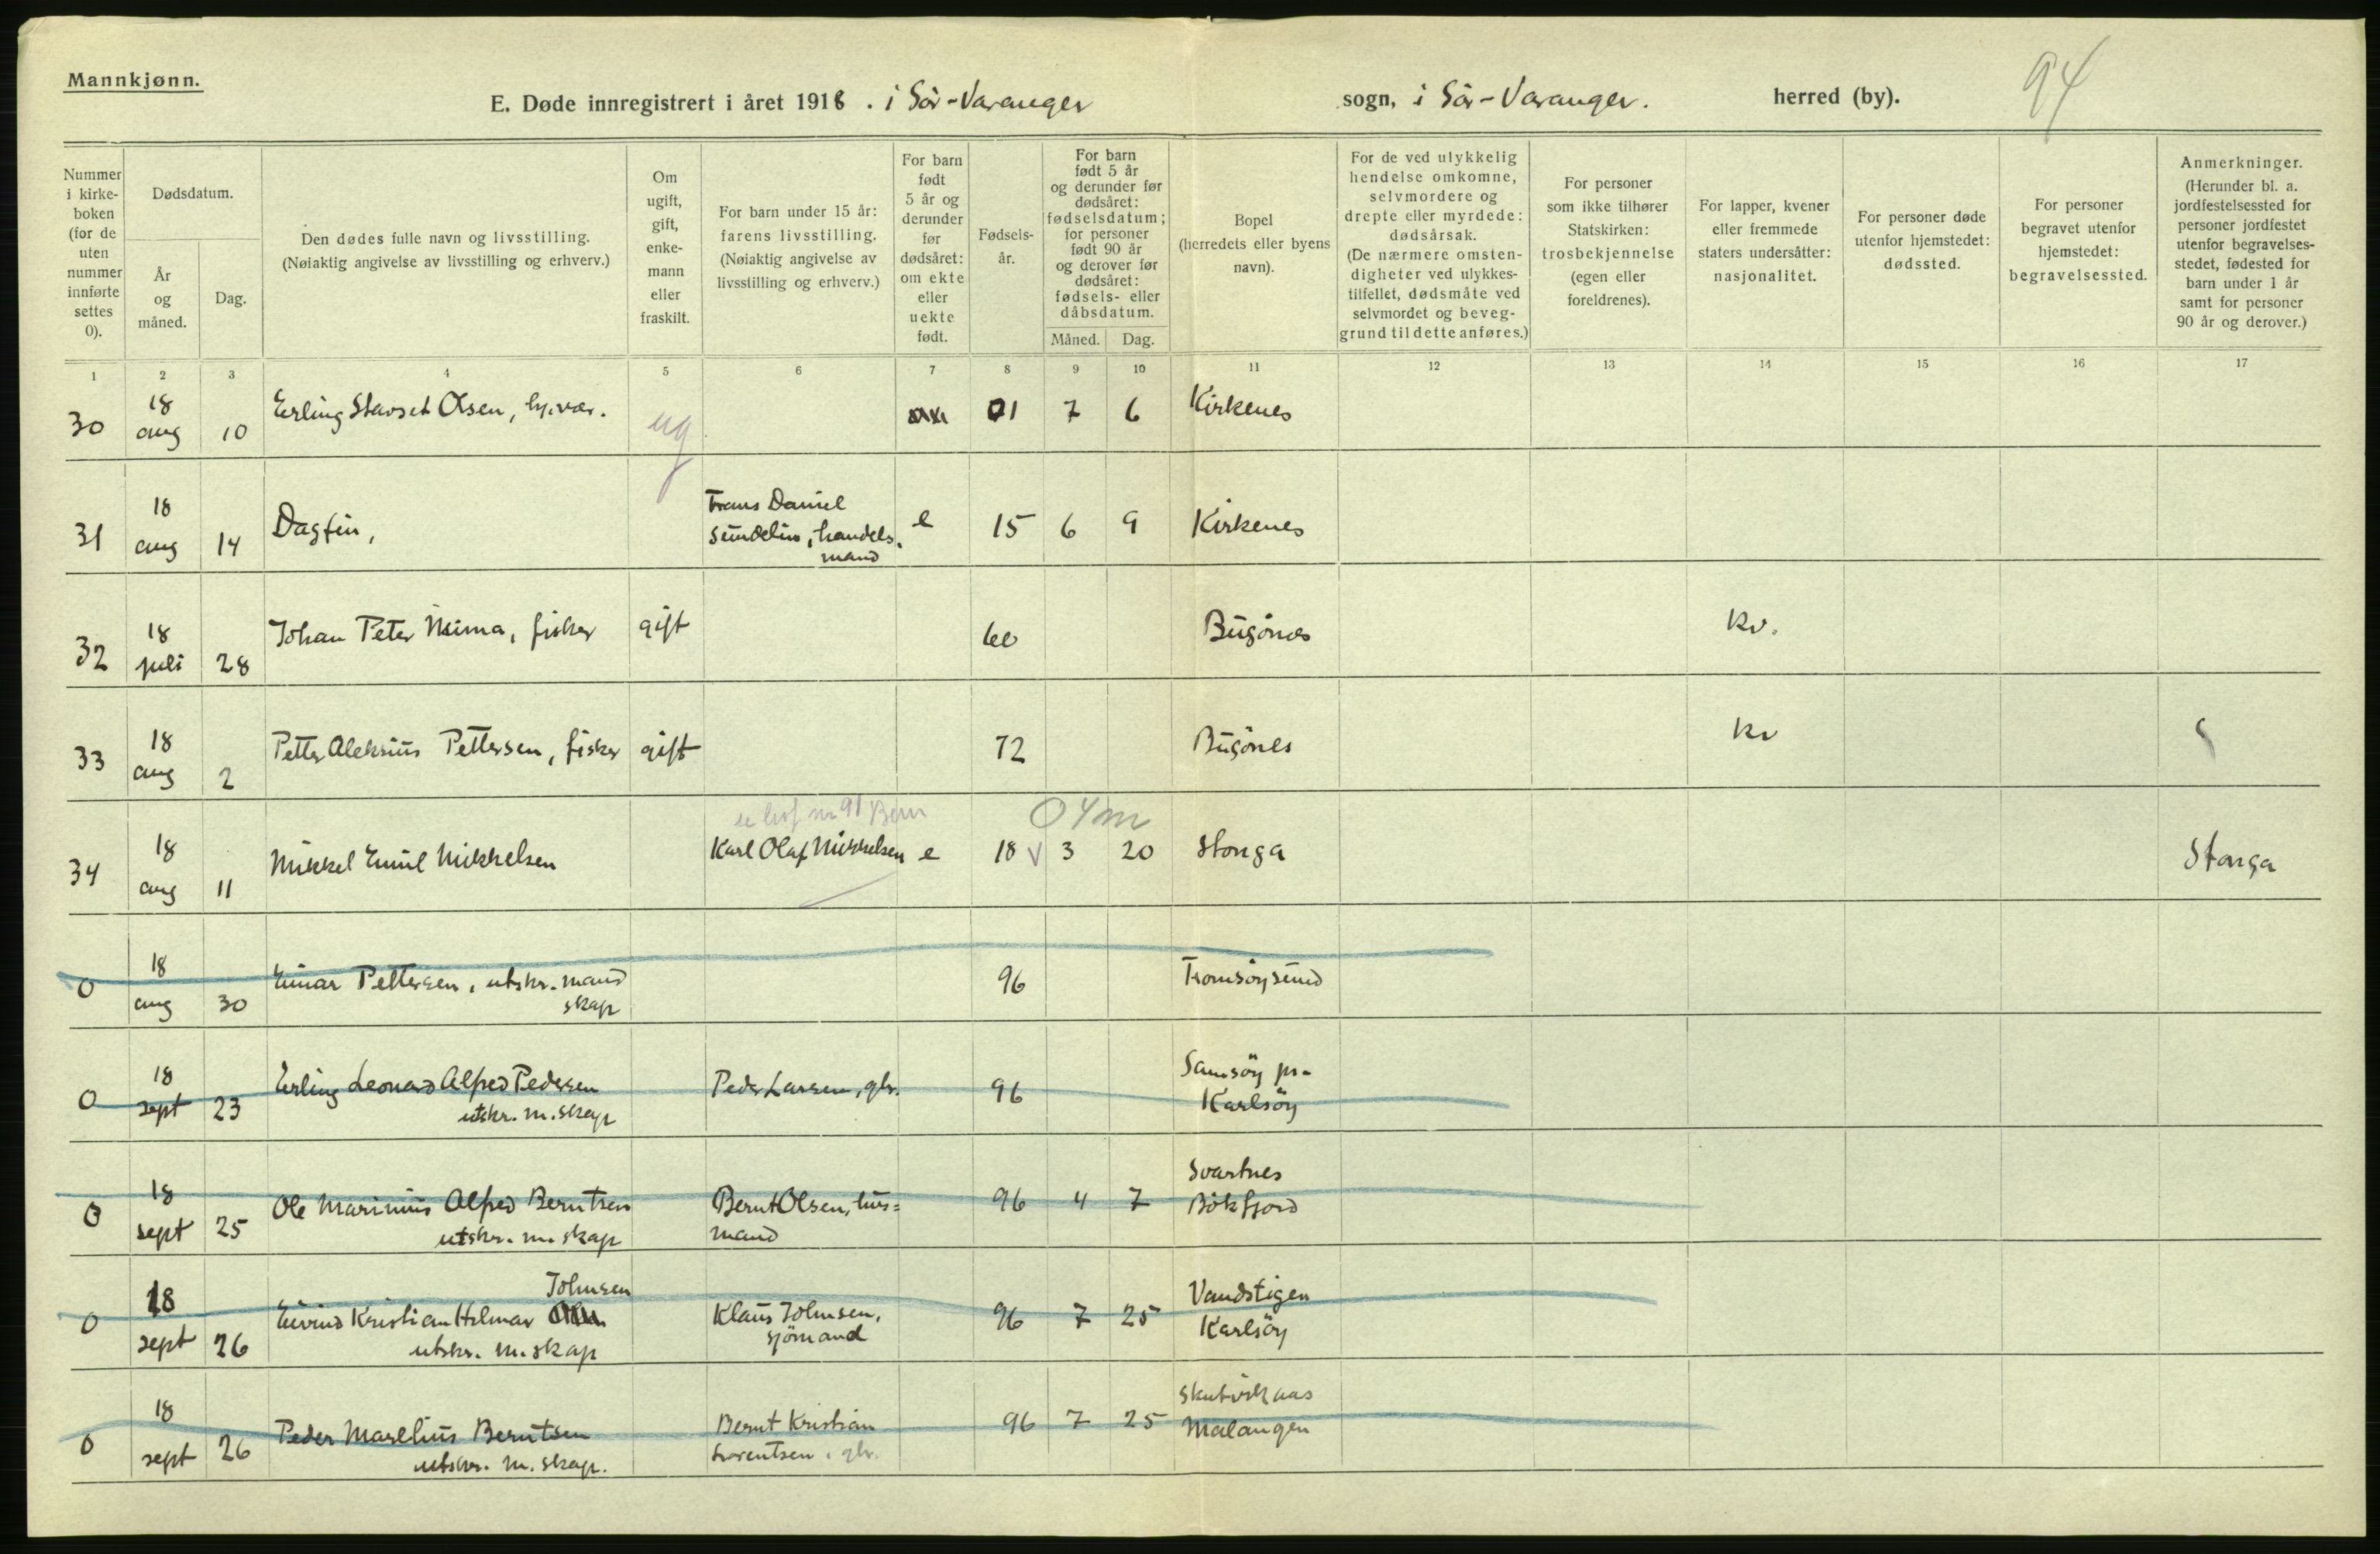 Mannkjønn.
94
E. Døde innregistrert i året 1918. i Sör-Varanger sogn, i Sör-Varanger. herred (by).
Nummer
i kirke-
boken
(for de
uten
nummer
innførte
settes
0).
Dødsdatum.
År
og
måned.
Dag.
Den dødes fulle navn og livsstilling.
(Nøiaktig angivelse av livsstilling og erhverv.)
Om
ugift,
gift,
enke-
mann
eller
fraskilt.
For barn under 15 år:
farens livsstilling.
(Nøiaktig angivelse av
livsstilling og erhverv.)
For barn
født
5 år og
derunder
før
dødsåret:
om ekte
eller
uekte
født.
Fødsels-
år.
For barn
født 5 år
og derunder før
dødsåret:
fødselsdatum;
for personer
født 90 år
og derover før
dødsåret:
fødsels- eller
dåbsdatum.
Måned. Dag.
Bopel
(herredets eller byens
navn).
For de ved ulykkelig
hendelse omkomne,
selvmordere og
drepte eller myrdede:
dødsårsak.
(De nærmere omsten-
digheter ved ulykkes-
tilfellet, dødsmåte ved
selvmordet og beveg-
grund til dette anføres.)
For personer
som ikke tilhører
Statskirken:
trosbekjennelse
(egen eller
foreldrenes).
For lapper, kvener
eller fremmede
staters undersåtter:
nasjonalitet.
For personer døde
utenfor hjemstedet:
dødssted.
For personer
begravet utenfor
hjemstedet:
begravelsessted.
Anmerkninger.
(Herunder bl. a.
jordfestelsessted for
personer jordfestet
utenfor begravelses-
stedet, fødested for
barn under 1 år
samt for personer
90 år og derover.)
1 2 3 4 5 6 7 8 9 10 11 12 13 14 15 16 17
30 18 aug 10 Erling Stavset Olsen, ug 01 7 6 Kirkenes
31 18 aug 14 Dagfin, Frans Daniel
Sundelin, handels-
mand e 15 6 9 Kirkenes
32 18 juli 28 Johan Peter Niima, fisker gift 60 Bugönes kv.
33 18 aug 2 Petter Aleksius Pettersen, fisker gift 72 Bugönes kv
nr 91 0 4 m
34 18 aug 11 Mikkel Emil Mikkelsen Karl Olaf Mikkelsen e 18 3 20 Stonga Stonga
0 18 aug 30 Einar Pettersen, utskr. mand
skap 96 Tromsöysund
0 18 sept 23 Erling Leonard Alfred Pedersen
utskr. m.skap Peder Larsen, gbr. 96 Samsöy pr.
Karlsöy
0 18 sept 25 Ole Marinius Alfred Berntsen
utskr. m. skap Bernt Olsen, hus=
mand 96 4 7 Svartnes
Bökfjord
0 18 sept 26 Johnsen
Eivind Kristian Hilmar
utskr. m. skap Klaus Johnsen,
sjömand 96 7 25 Vandstigen
Karlsöy
0 18 sept 26 Peder Marelius Berntsen
utskr. m. skap. Bernt Kristian
Lorentsen, gbr. 96 7 25 Skutvik aas
Malangen